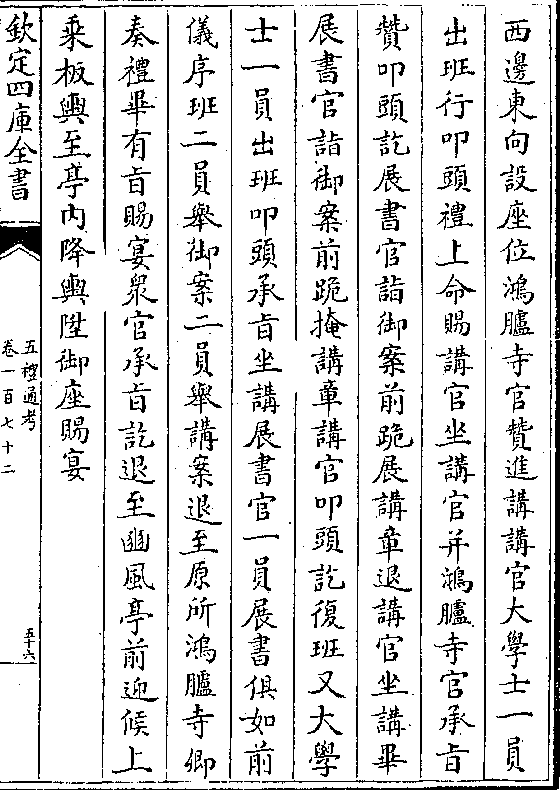 西邊東向設座位鴻臚寺官贊進講講官大學士一員
出班行叩頭禮上命賜講官坐講官并鴻臚寺官承旨
贊叩頭訖展書官詣御案前跪展講章退講官坐講畢
展書官詣御案前跪掩講章講官叩頭訖復班又大學
士一員出班叩頭承旨坐講展書官一員展書俱如前
儀序班二員舉御案二員舉講案退至原所鴻臚寺卿
奏禮畢有旨賜宴衆官承旨訖退至豳風亭前迎候上
乘板輿至亭內降輿陞御座賜宴
欽定四庫全書
五禮通考
卷一百七十二
五十六